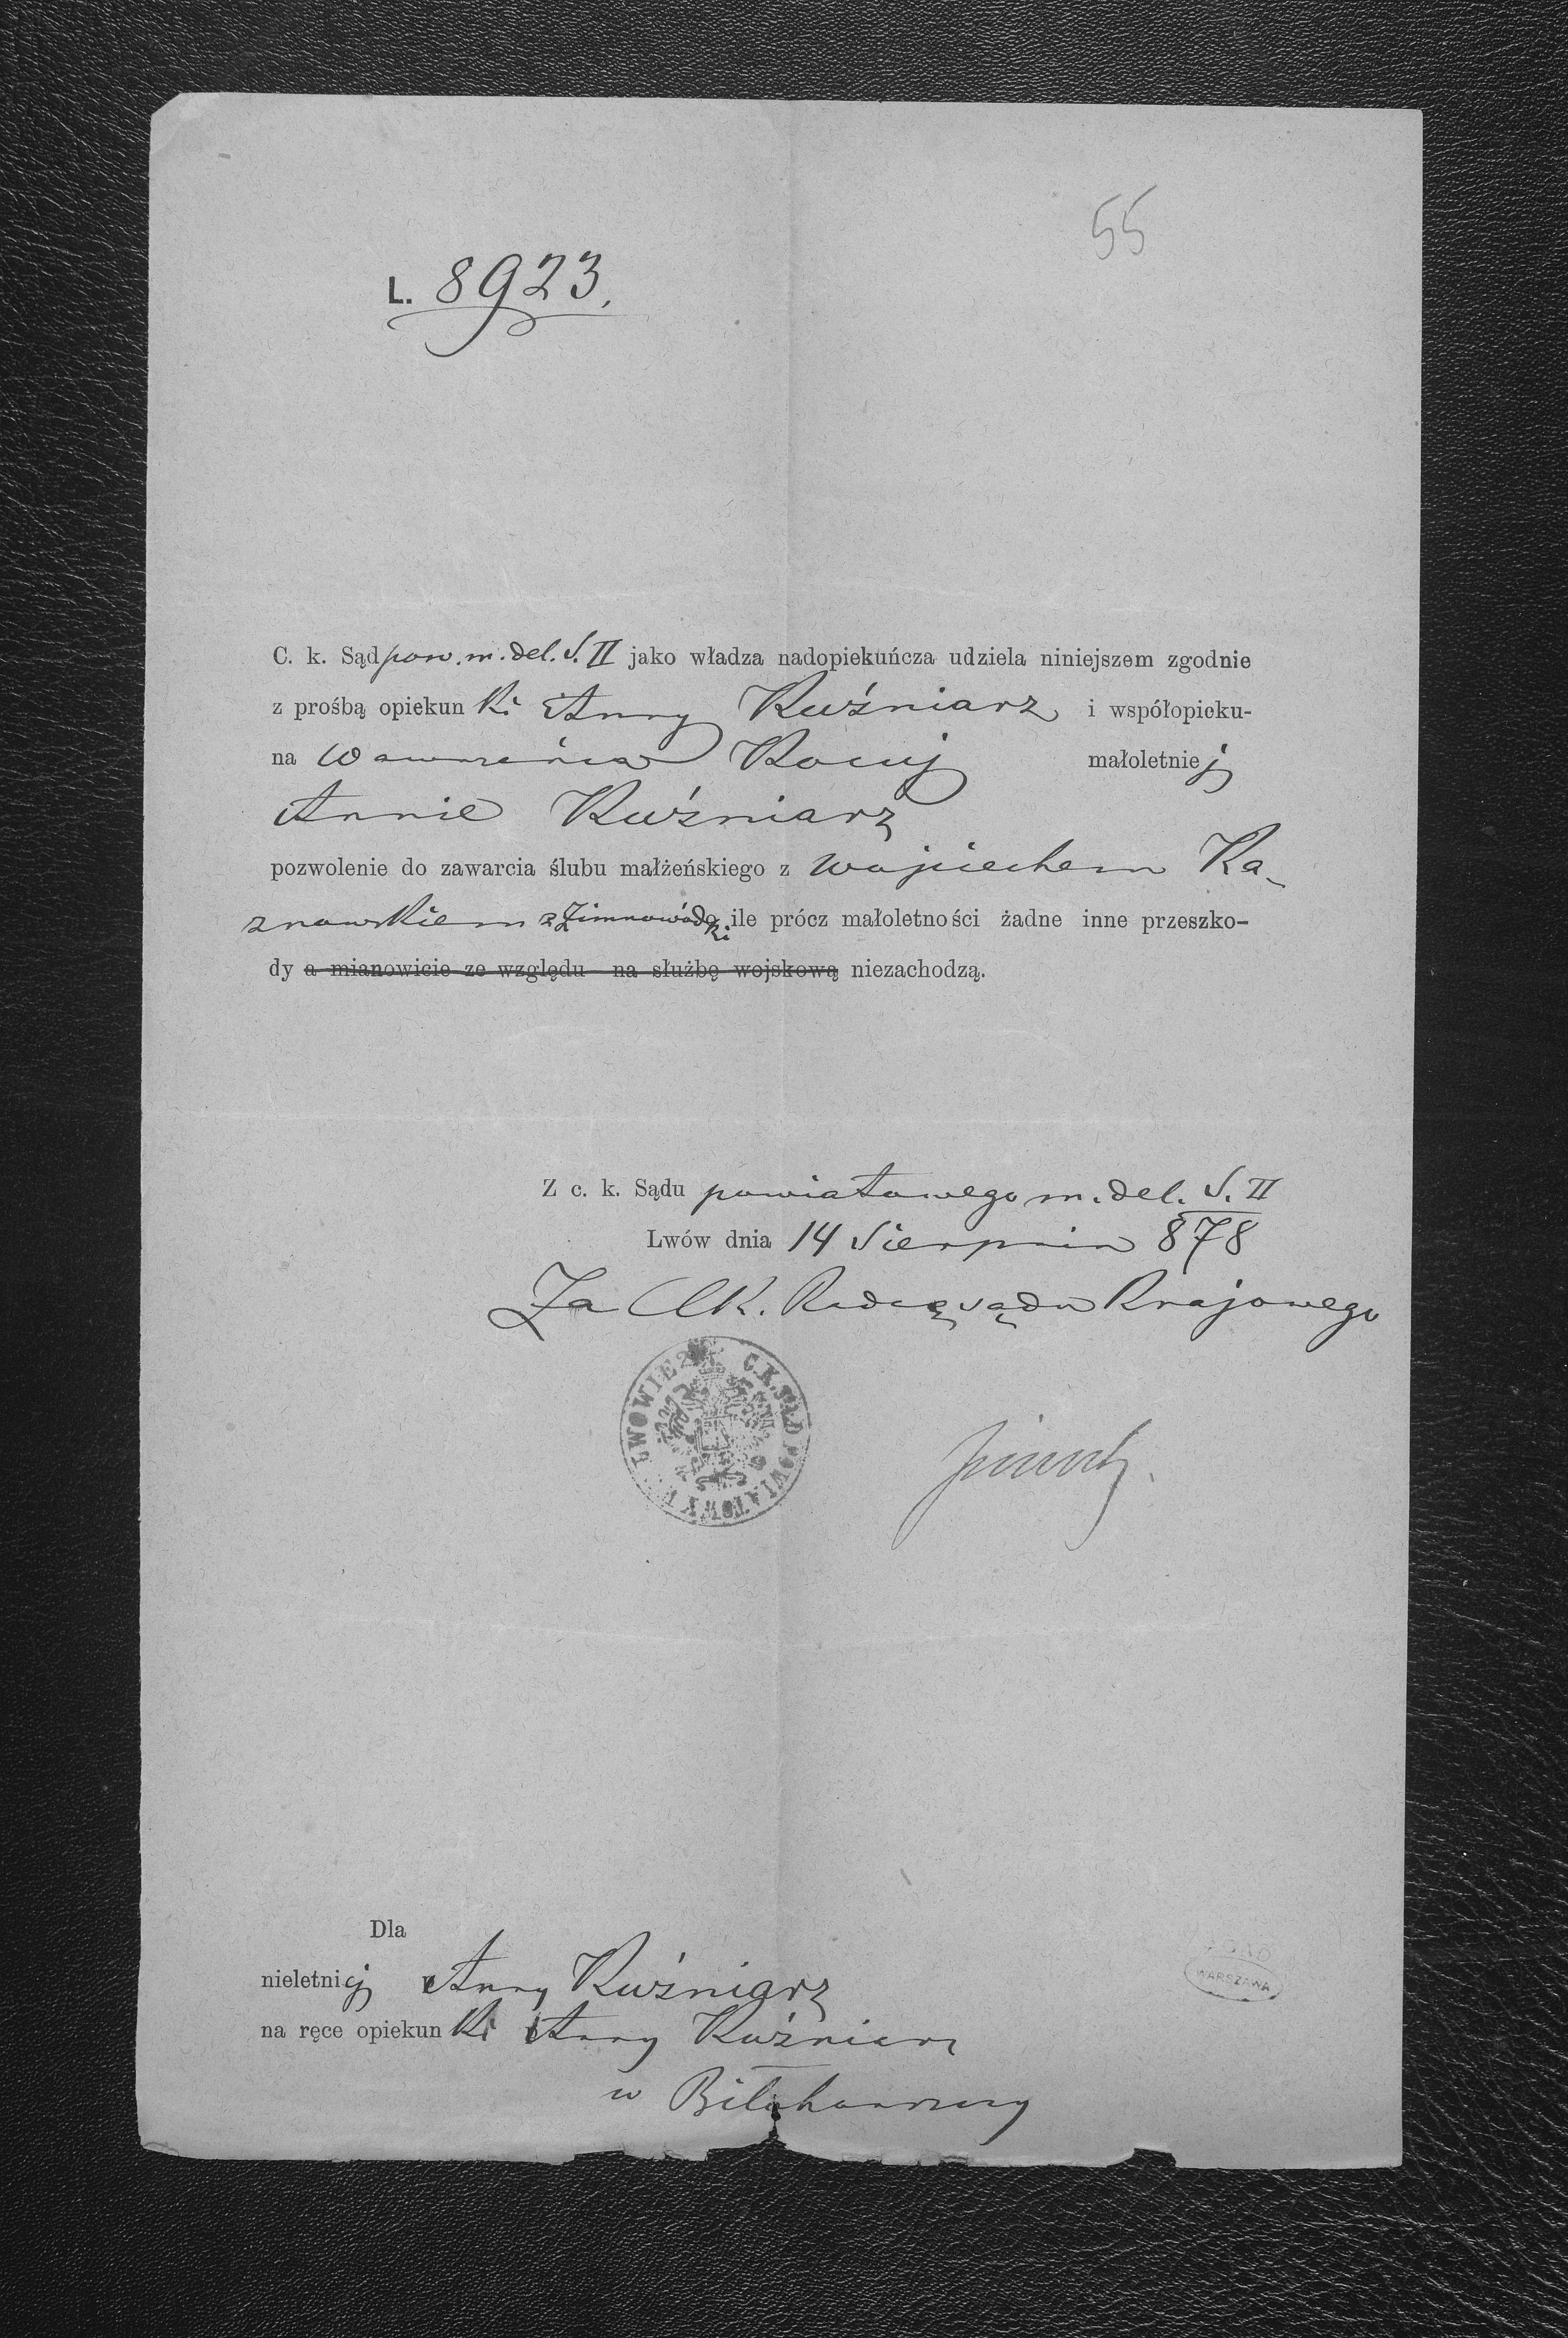 55
L. 8923.
C. k. Sąd pow. m. del. S. II jako władza nadopiekuńcza udziela niniejszem zgodnie
z prośbą opiekunki Anny Kuźniarz i współopieku-
na Wawrzeńca Kociój małoletniej
Annie Kuźniarz
pozwolenie do zawarcia ślubu małżeńskiego z Wojciechem Ka-
znowskiem z Zimnowódki o ile prócz małoletności żadne inne przeszko-
dy a mianowicie ze względu na służbę wojskową niezachodzą.
Z c. k. Sądu powiatowego m. del. S. II
Lwów dnia 14 Sierpnia 878
Za CK. Radcę sądu Krajowego
C.K. SĄD POWIATOWY LWOWIE
Dla
nieletniej Anny Kuźniarz
na ręce opiekunki Anny Kuźniarz
w Biłohorszczy
AGAD
WARSZAWA